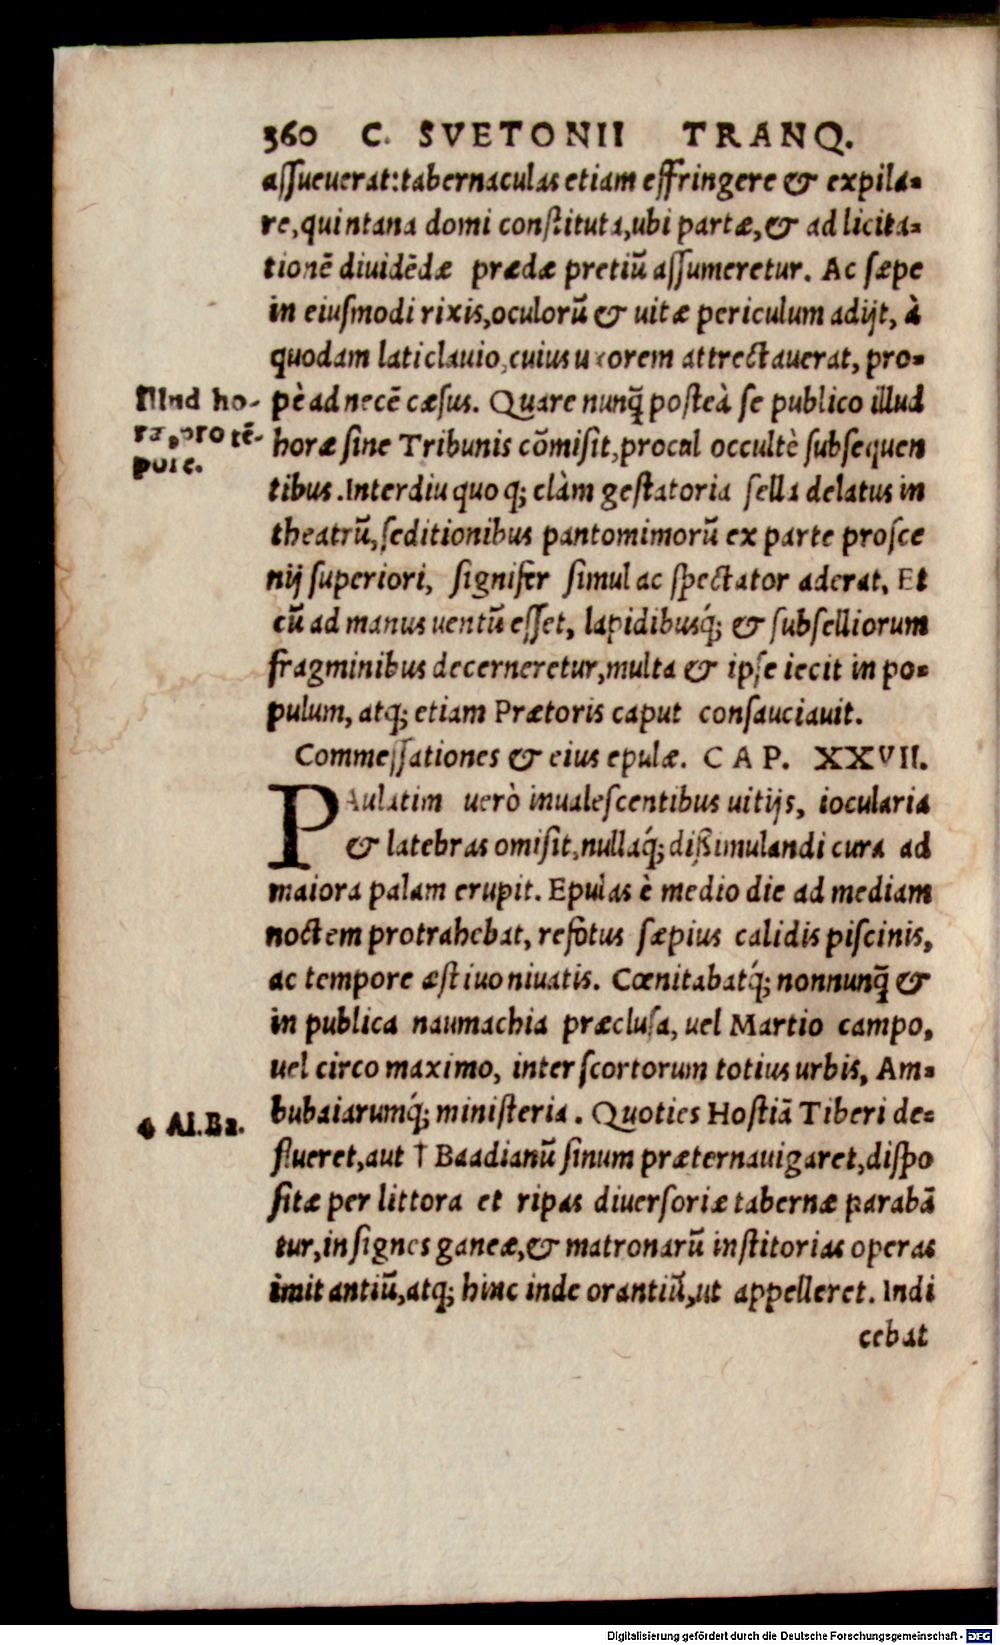 360 C. SVETONII TRANQ.
assueuerat:tabernaculas etiam effringere & expila-
re,quintana domi constituta,ubi partæ,& ad licita-
tionē diuidēdæ prædæ pretiū assumeretur. Ac sæpe
in eiusmodi rixis,oculorū & uitæ periculum adijt, à
quodam laticlauio,cuius uxorem attrectauerat, pro-
pè ad necē cæsus. Quare nunq̃ posteà se publico illud
horæ sine Tribunis cōmisit,procal occultè subsequen
tibus.Interdiu quoq; clàm gestatoria sella delatus in
theatrū,seditionibus pantomimorū ex parte prosce
nij superiori, signifer simul ac spectator aderat. Et
cū ad manus uentū esset, lapidibusq́; & subselliorum
fragminibus decerneretur,multa & ipse iecit in po-
pulum, atq; etiam Prætoris caput consauciauit.
Illud ho-
ræ,pro tē-
pore.
Commessationes & eius epulæ. CAP. XXVII.
PAulatim uerò inualescentibus uitijs, iocularia
& latebras omisit,nullaq́; dißimulandi cura ad
maiora palam erupit. Epulas è medio die ad mediam
noctem protrahebat, refotus sæpius calidis piscinis,
ac tempore æstiuo niuatis. Cœnitabatq́; nonnunq̃ &
in publica naumachia præclusa, uel Martio campo,
uel circo maximo, inter scortorum totius urbis, Am-
bubaiarumq́; ministeria. Quoties Hostiā Tiberi de-
flueret,aut † Baadianū sinum præternauigaret,dispo
sitæ per littora et ripas diuersoriæ tabernæ parabā
tur,insignes ganeæ,& matronarū institorias operas
imitantiū,atq; hinc inde orantiū,ut appelleret. Indi
cebat
Al.Ba.
Digitalisierung gefördert durch die Deutsche Forschungsgemeinschaft - DFG